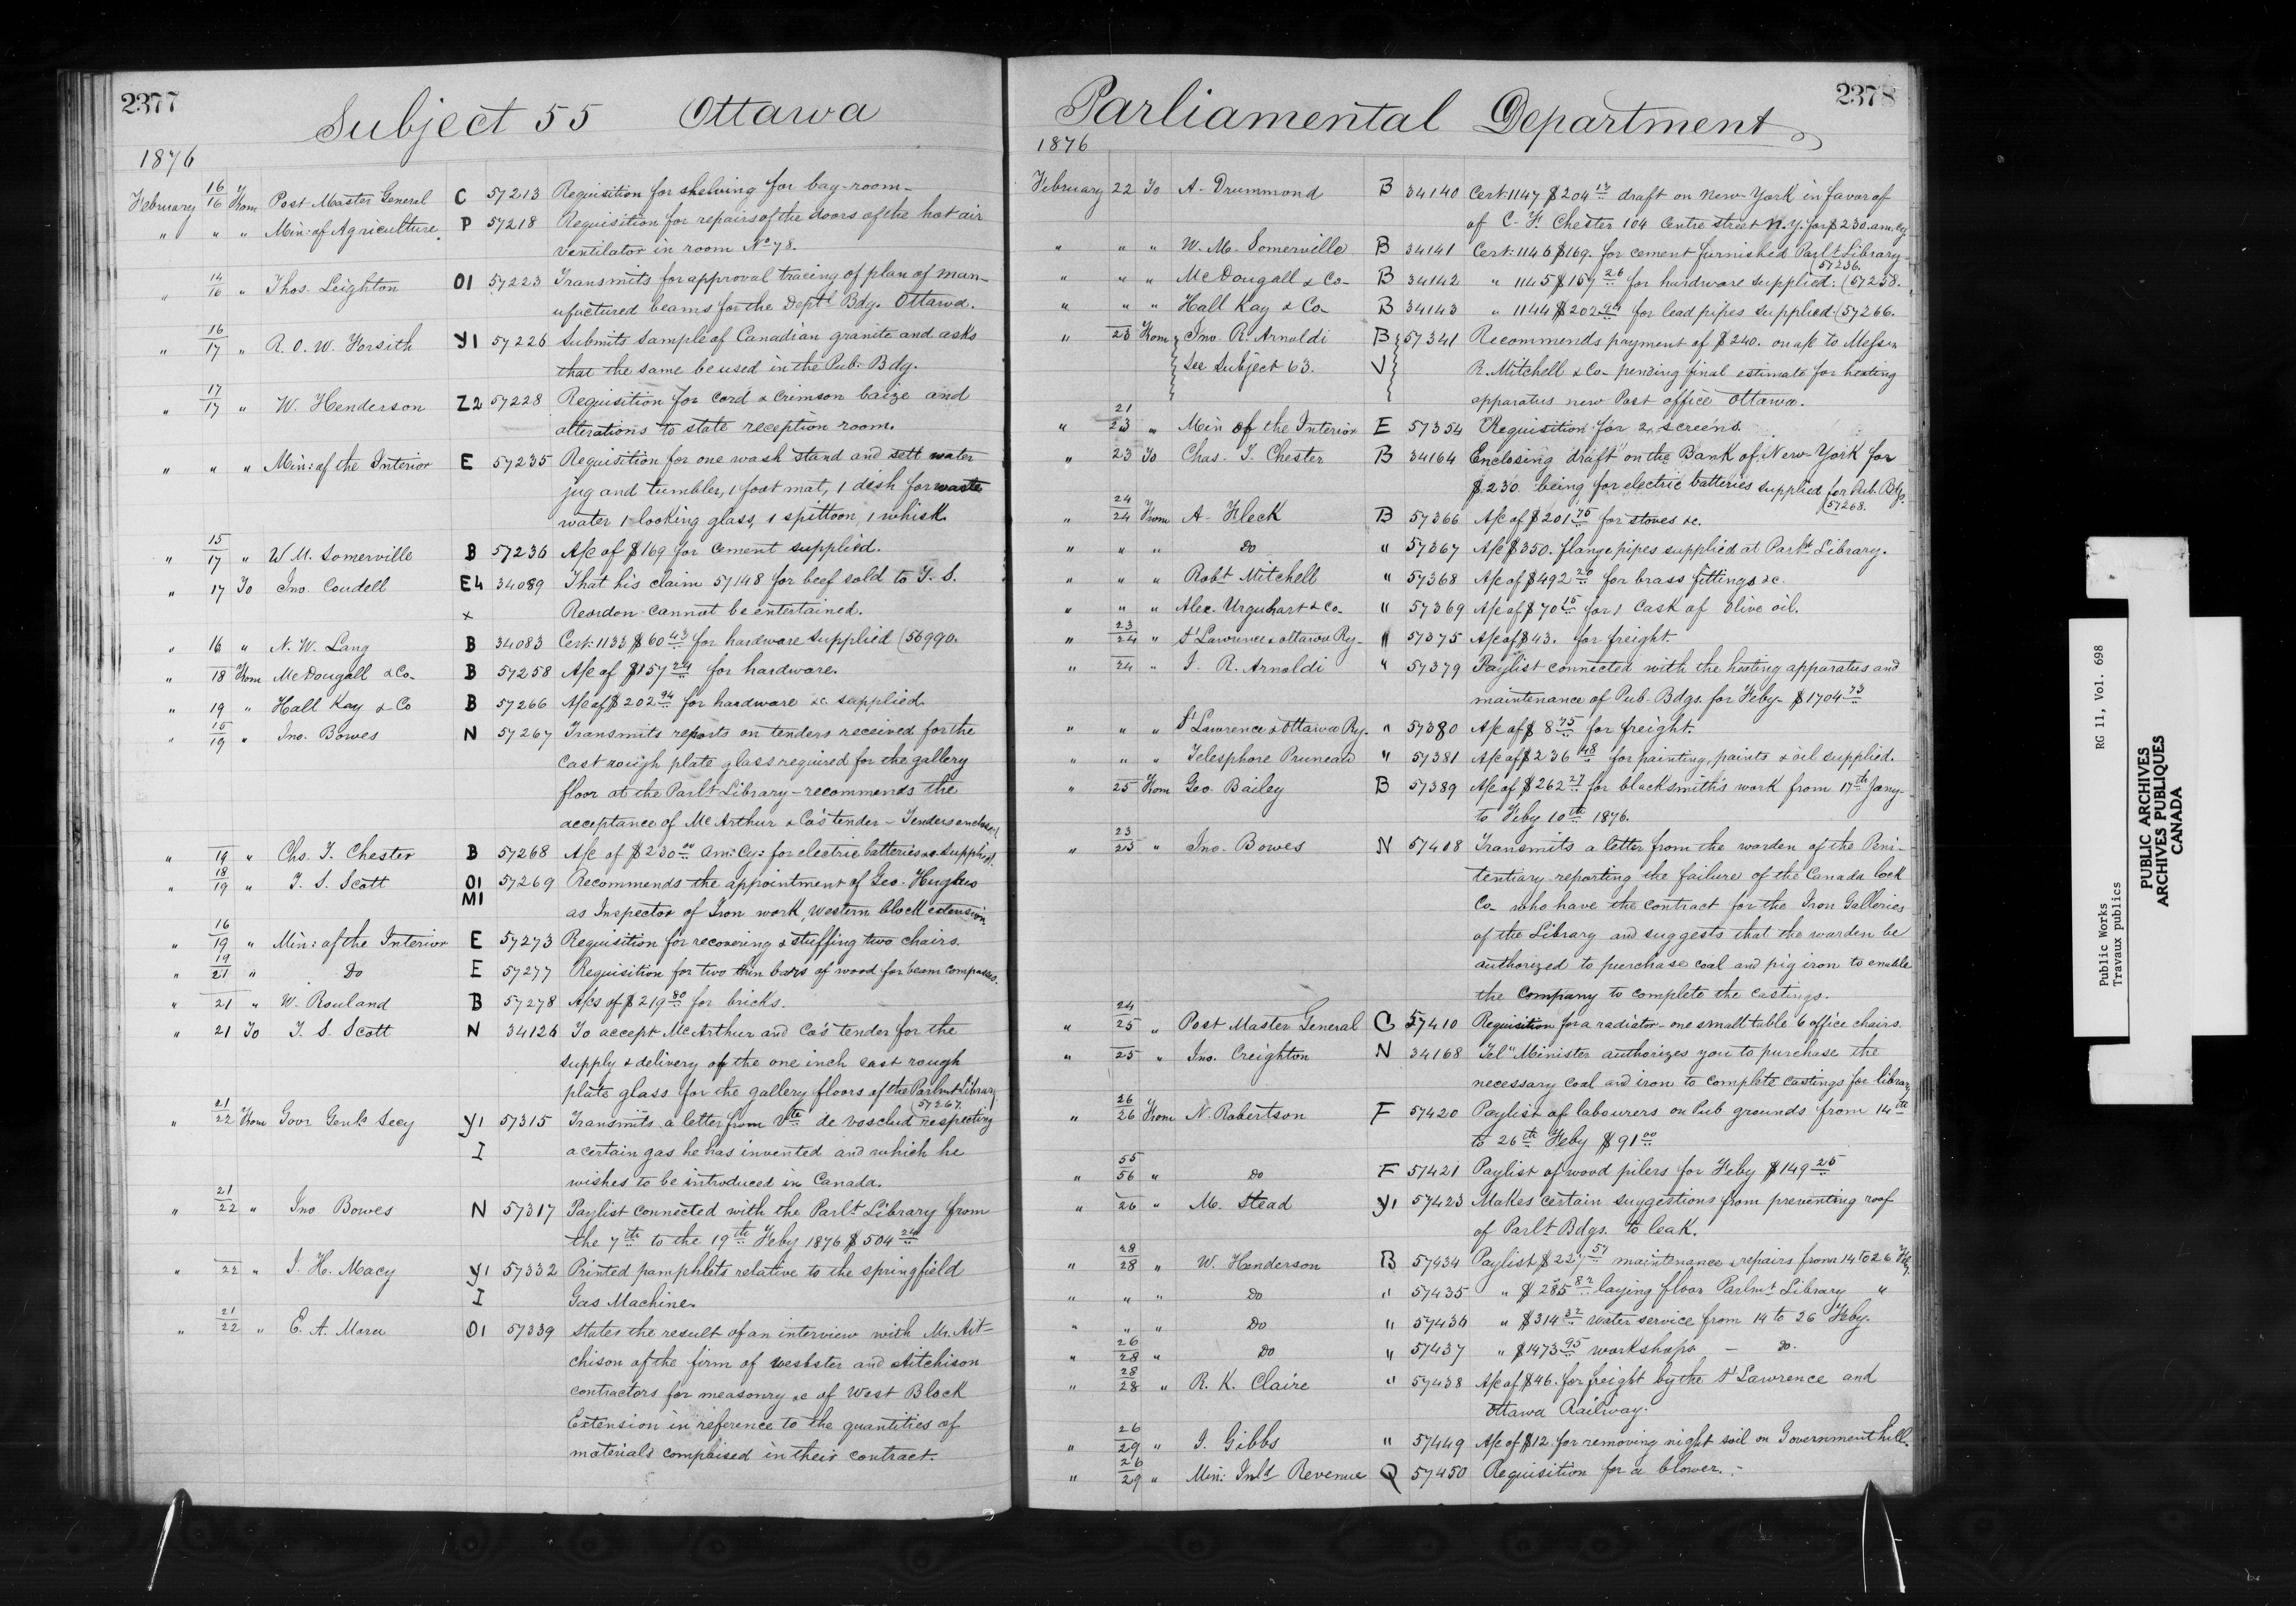 2377
Subject 55 Ottawa
1876
February 16/16 From Post Master General C 57213 Requisition for shelving for bag-room-
" " " Min: of Agriculture. P 57218 Requisition for repairs of the doors of the hot air
ventilator in room No 78.
" 14/16 " Thos. Leighton O1 57223 Transmits for approval tracing of plan of man-
ufactured beams for the Deptl Bdg. Ottawa.
" 16/17 " R. O. W. Forsith Y1 57226 Submits sample of Canadian granite and asks
that the same be used in the Pub: Bdg.
" 17/17 " W. Henderson Z2 57228 Requisition for cord & crimson baize and
alterations to state reception room.
" " " Min: of the Interior E 57235 Requisition for one wash stand and sett water
jug and tumbler, 1 foot mat, 1 dish for waste
water 1 looking glass, 1 spittoon, 1 whisk.
" 15/17 " W M. Somerville B 57236 A/c of $169 for cement supplied.
" 17 To Jno. Coudell E4 34089 That his claim 57148 for beef sold to T. S.
x Reardon cannot be entertained.
" 16 " N. W. Lang B 34083 Cert: 1133 $60 43 for hardware supplied (56990.
" 18 From McDougall & Co- B 57258 A/c of $157 24 for hardware.
" 19 " Hall Kay & Co B 57266 A/c of $202 94 for hardware &c supplied.
" 15/19 " Jno. Bowes N 57267 Transmits reports on tenders received for the
cast rough plate glass required for the gallery
floor at the Parlt Library - recommends the
acceptance of McArthur & Co's tender - Tenders enclosed.
" 19 " Chs. T. Chester B 57268 A/c of $230 00 Am: Cy: for electric batteries &c supplied.
" 18/19 " T. S. Scott O1 57269 Recommends the appointment of Geo. Hughes
M1 as Inspector of Iron work, Western block extension
" 16/19 " Min: of the Interior E 57273 Requisition for recovering & stuffing two chairs.
" 19/21 " Do E 57277 Requisition for two thin bars of wood for beam compasses.
" 21 " W. Rouland B 57278 A/cs of $219 80 for bricks.
" 21 To T. S. Scott N 34126 To accept McArthur and Co's tender for the
supply & delivery of the one inch cast rough
plate glass for the gallery floors of the Parlmt Library
(57267.
" 21/22 From Govr Genls Secy Y1 57315 Transmits a letter from Vte de respecting
I a certain gas he has invented and which he
wishes to be introduced in Canada.
" 21/22 " Jno. Bowes N 57317 Paylist connected with the Parlt Library from
the 7th to the 19th Feby 1876 $504 24
" 22 " J. H. Macy Y1 57332 Printed pamphlets relative to the springfield
I Gas Machine.
" 21/22 " E. A. Mara O1 57339 States the result of an interview with Mr. Ait-
chison of the firm of Webster and Aitchison
contractors for measonry &c of West Block
Extension in reference to the quantities of
materials comprised in their contract.
2378
Parliamental Department
1876
February 22 To A- Drummond B 34140 Cert: 1147 $204 17 draft on New-York in favor of
of C- F. Chester 104 Centre street N.Y. for $230. am. cy
" " " W. M. Somerville B 34141 Cert: 1146 $169. for cement furnished Parlt Library
(57236.
" " " McDougall & Co- B 34142 " 1145 $157 26 for hardware supplied: (57258.
" " " Hall Kay & Co B 34143 " 1144 $202 94 for lead pipes supplied (57266.
" 23 From Jno. R. Arnoldi B 57341 Recommends payment of $240. on a/c to Messrs
See Subject 63. V R. Mitchell & Co- pending final estimate for heating
apparatus new Post office Ottawa.
" 21/23 " Min of the Interior E 57354 Requisition for 2 screens.
" 23 To Chas. T. Chester B 34164 Enclosing draft on the Bank of New-York for
$230. being for electric batteries supplied for Pub. Bdgs.
(57268.
" 24/24 From A- Fleck B 57366 A/c of $201 75 for stoves &c.
" " " Do " 57367 A/c $350. flange pipes supplied at Parlt Library.
" " " Robt Mitchell " 57368 A/c of $492 20 for brass fittings &c.
" " " Alex. Urquhart & Co- " 57369 A/c of $70 15 for 1 cask of Olive oil.
" 23/24 " St Lawrence & Ottawa Ry- " 57375 A/c of $43. for freight.
" 24 " J. R. Arnoldi " 57379 Paylist connected with the heating apparatus and
maintenance of Pub. Bdgs. for Feby- $1704 73
" " " St Lawrence & Ottawa Ry. " 57380 A/c of $8 75 for freight.
" " " Telesphore Pruneau " 57381 A/c of $236 48 for painting, paints & oil supplied.
" 25 From Geo. Bailey B 57389 A/c of $262 27 for blacksmiths work from 17th Jany-
to Feby 10th 1876.
" 23/25 " Jno. Bowes N 57408 Transmits a letter from the warden of the Peni-
tentiary reporting the failure of the Canada Lock
Co- who have the contract for the Iron Galleries
of the Library and suggests that the warden be
authorized to purchase coal and pig iron to enable
the Company to complete the castings.
" 24/25 " Post Master General C 57410 Requisition for a radiator - one small table 6 office chairs.
" 25 " Jno. Creighton N 34168 Tel" Minister authorizes you to purchase the
necessary coal and iron to complete castings for library
" 26/26 From N. Robertson F 57420 Paylist of labourers on Pub grounds from 14th
to 26th Feby $91 00
" 55/56 " Do F 57421 Paylist of wood pilers for Feby $149 25
" 26 " M. Stead Y1 57423 Makes certain suggestions from preventing roof
of Parlt Bdgs. to leak.
" 28/28 " W. Henderson B 57434 Paylist $227 57 maintenance & repairs from 14 to 26 Feby.
" " " Do " 57435 " $285 82 laying floor Parlmt Library "
" " " Do " 57436 " $314 32 water service from 14 to 26 Feby.
" 26/28 " Do " 57437 " $1473 95 workshops - Do.
" 28/28 " R. K. Claire " 57438 A/c of $46. for freight by the St Lawrence and
Ottawa Railway.
" 26/29 " J. Gibbs " 57449 A/c of $12. for removing night soil on Government hill.
" 26/29 " Min: Inld Revenue Q 57450 Requisition for a blower.-
Public Works RG 11, Vol. 698
Travaux publics
PUBLIC ARCHIVES
ARCHIVES PUBLIQUES
CANADA